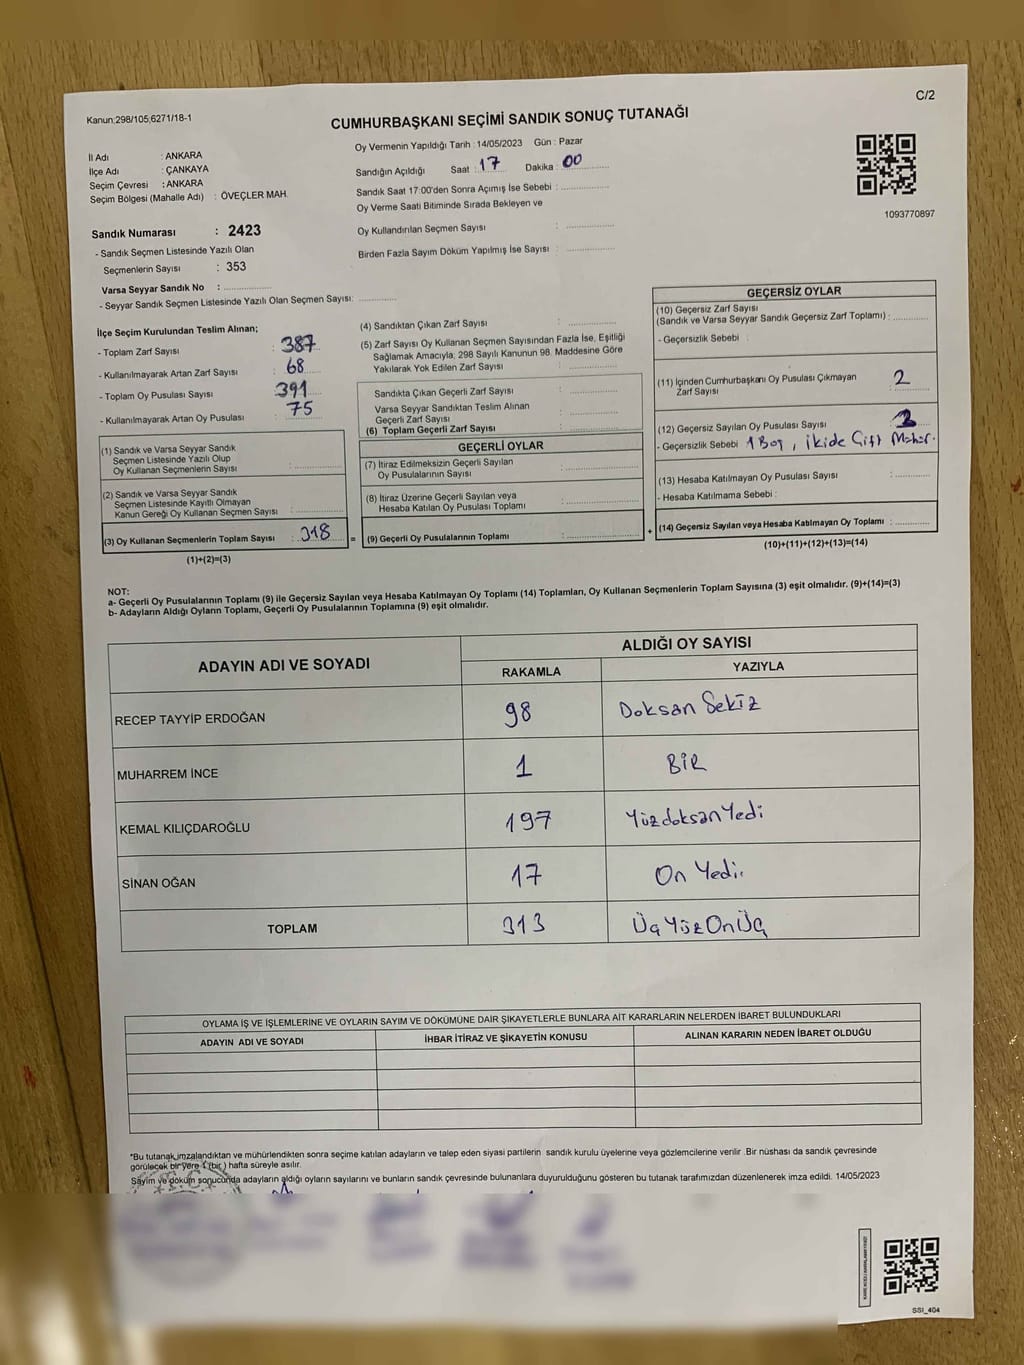 C/2
Kanun:298/105,6271/18-1
CUMHURBAŞKANI SEÇİMİ SANDIK SONUÇ TUTANAĞI
Oy Vermenin Yapıldığı Tarih : 14/05/2023 Gün : Pazar
İl Adı : ANKARA
İlçe Adı : ÇANKAYA
Seçim Çevresi : ANKARA
Seçim Bölgesi (Mahalle Adı) : ÖVEÇLER MAH.
Sandığın Açıldığı Saat : 17 Dakika : 00
Sandık Saat 17:00'den Sonra Açımış İse Sebebi :
Oy Verme Saati Bitiminde Sırada Bekleyen ve
Oy Kullandırılan Seçmen Sayısı :
Birden Fazla Sayım Döküm Yapılmış İse Sayısı :
1093770897
Sandık Numarası : 2423
- Sandık Seçmen Listesinde Yazılı Olan
Seçmenlerin Sayısı : 353
Varsa Seyyar Sandık No :
- Seyyar Sandık Seçmen Listesinde Yazılı Olan Seçmen Sayısı:
İlçe Seçim Kurulundan Teslim Alınan;
- Toplam Zarf Sayısı : 387
- Kullanılmayarak Artan Zarf Sayısı : 68
- Toplam Oy Pusulası Sayısı : 391
- Kullanılmayarak Artan Oy Pusulası : 75
(1) Sandık ve Varsa Seyyar Sandık
Seçmen Listesinde Yazılı Olup
Oy Kullanan Seçmenlerin Sayısı :
(2) Sandık ve Varsa Seyyar Sandık
Seçmen Listesinde Kayıtlı Olmayan
Kanun Gereği Oy Kullanan Seçmen Sayısı :
(3) Oy Kullanan Seçmenlerin Toplam Sayısı : 318 =
(1)+(2)=(3)
(4) Sandıktan Çıkan Zarf Sayısı :
(5) Zarf Sayısı Oy Kullanan Seçmen Sayısından Fazla İse, Eşitliği
Sağlamak Amacıyla; 298 Sayılı Kanunun 98. Maddesine Göre
Yakılarak Yok Edilen Zarf Sayısı :
Sandıkta Çıkan Geçerli Zarf Sayısı :
Varsa Seyyar Sandıktan Teslim Alınan
Geçerli Zarf Sayısı :
(6) Toplam Geçerli Zarf Sayısı :
GEÇERLİ OYLAR
(7) İtiraz Edilmeksizin Geçerli Sayılan
Oy Pusulalarının Sayısı :
(8) İtiraz Üzerine Geçerli Sayılan veya
Hesaba Katılan Oy Pusulası Toplamı :
(9) Geçerli Oy Pusulalarının Toplamı : +
GEÇERSİZ OYLAR
(10) Geçersiz Zarf Sayısı
(Sandık ve Varsa Seyyar Sandık Geçersiz Zarf Toplamı) :
- Geçersizlik Sebebi :
(11) İçinden Cumhurbaşkanı Oy Pusulası Çıkmayan
Zarf Sayısı : 2
(12) Geçersiz Sayılan Oy Pusulası Sayısı : 3
- Geçersizlik Sebebi 1 Boş, ikide Çift Mühür.
(13) Hesaba Katılmayan Oy Pusulası Sayısı :
- Hesaba Katılmama Sebebi :
(14) Geçersiz Sayılan veya Hesaba Katılmayan Oy Toplamı :
(10)+(11)+(12)+(13)=(14)
NOT:
a- Geçerli Oy Pusulalarının Toplamı (9) ile Geçersiz Sayılan veya Hesaba Katılmayan Oy Toplamı (14) Toplamları, Oy Kullanan Seçmenlerin Toplam Sayısına (3) eşit olmalıdır. (9)+(14)=(3)
b- Adayların Aldığı Oyların Toplamı, Geçerli Oy Pusulalarının Toplamına (9) eşit olmalıdır.
ADAYIN ADI VE SOYADI ALDIĞI OY SAYISI
RAKAMLA YAZIYLA
RECEP TAYYİP ERDOĞAN 98 Doksan Sekiz
MUHARREM İNCE 1 BİR
KEMAL KILIÇDAROĞLU 197 Yüzdoksan Yedi
SİNAN OĞAN 17 On Yedi.
TOPLAM 313 Üç Yüz On Üç
OYLAMA İŞ VE İŞLEMLERİNE VE OYLARIN SAYIM VE DÖKÜMÜNE DAİR ŞİKAYETLERLE BUNLARA AİT KARARLARIN NELERDEN İBARET BULUNDUKLARI
ADAYIN ADI VE SOYADI İHBAR İTİRAZ VE ŞİKAYETİN KONUSU ALINAN KARARIN NEDEN İBARET OLDUĞU
*Bu tutanak,imzalandıktan ve mühürlendikten sonra seçime katılan adayların ve talep eden siyasi partilerin sandık kurulu üyelerine veya gözlemcilerine verilir .Bir nüshası da sandık çevresinde
görülecek bir yere 1 (bir ) hafta süreyle asılır.
Sayım ve döküm sonucunda adayların aldığı oyların sayılarını ve bunların sandık çevresinde bulunanlara duyurulduğunu gösteren bu tutanak tarafımızdan düzenlenerek imza edildi. 14/05/2023
SSI_404